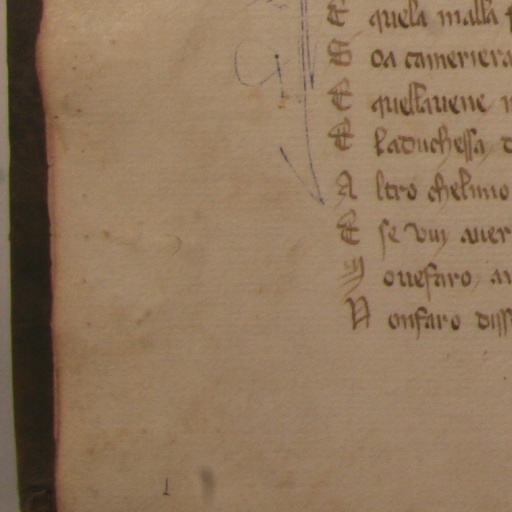 E quela malla
E oa cameriera
E quellauene
E la duchessa d
A ltro chelmio
E se vuy auer
Y ouefaro
N onfaro diss